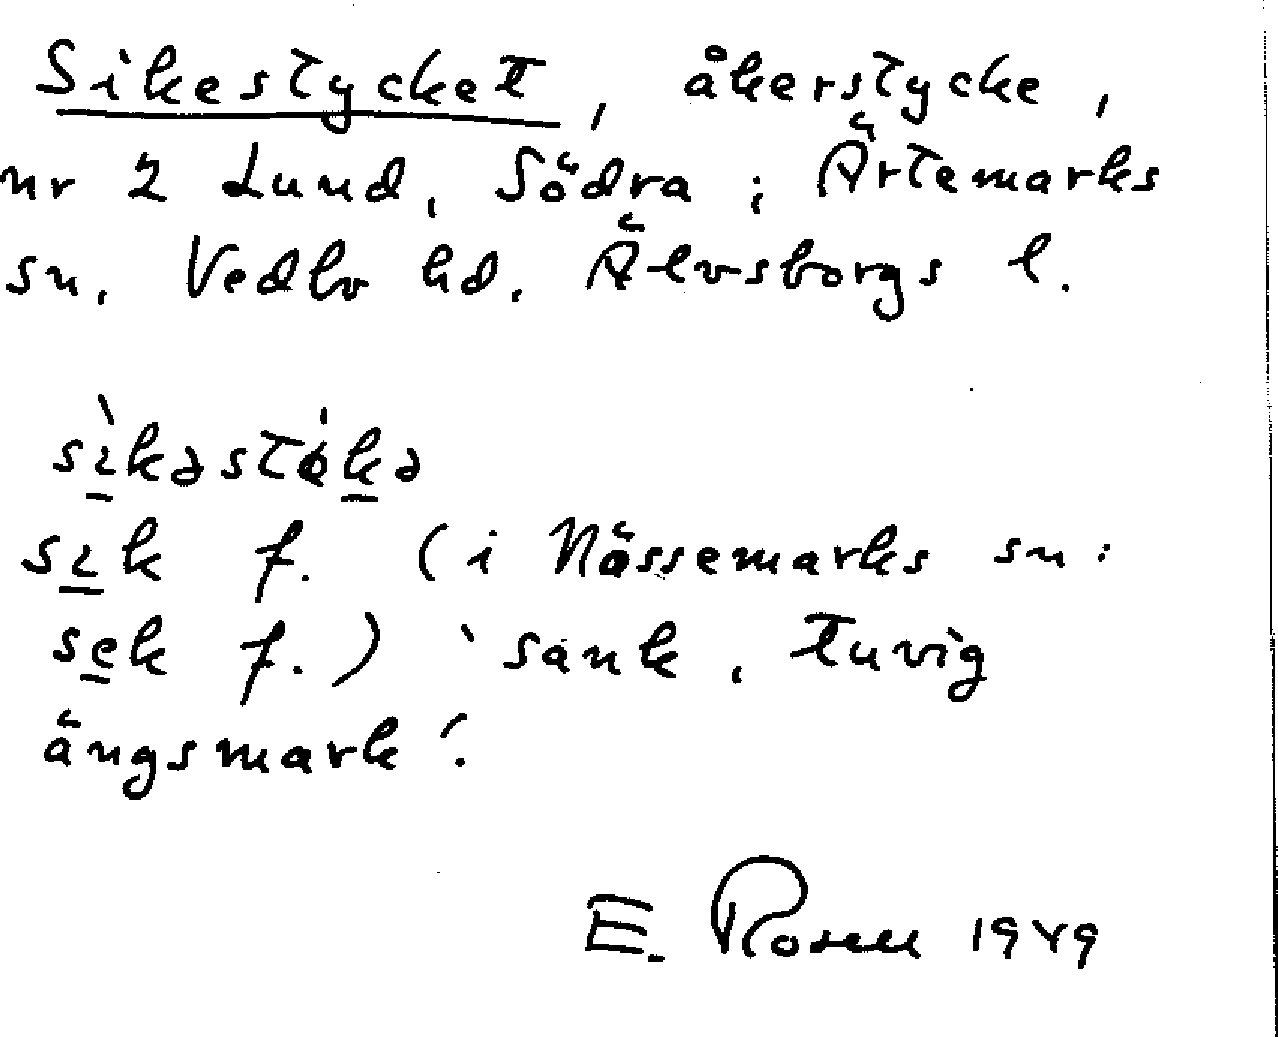 Sikestycket, åkerstycke,
nr 2 Lund, Södra i Ärtemarks
sn, Vedbo hd. Älvsborgs l.
sìkəstôkə
sɩk f. (i Nössemarks sn:
sek f.) 'sank, tuvig
ängsmark'.
E. Rosell 1949